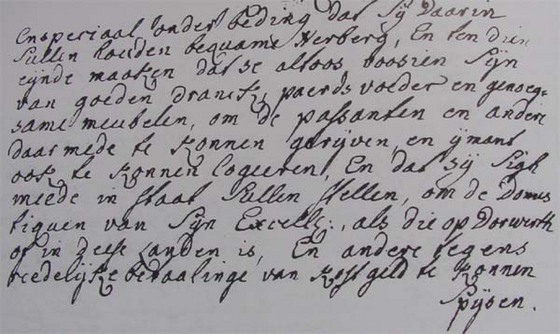 Enspeciaal onder beding dat sÿ daarin
sullen houden bequame Herberg, En ten dien
eÿnde maaken dat se altoos voorsien sÿn
van goeden dranck, paerds voeder en genoeg=
same meubelen, om de passanten en andere
daar mede te konnen gerÿven, en ÿmant
ook te konnen logeeren, En dat sÿ sigh
meede in staat sullen stellen, om de Domes
tiquen van sÿn Excell:, als die op Dorwerth
of in deese Landen is, En andere tegens
reedelÿke betaalinge van kostgeld te konnen
spÿsen.